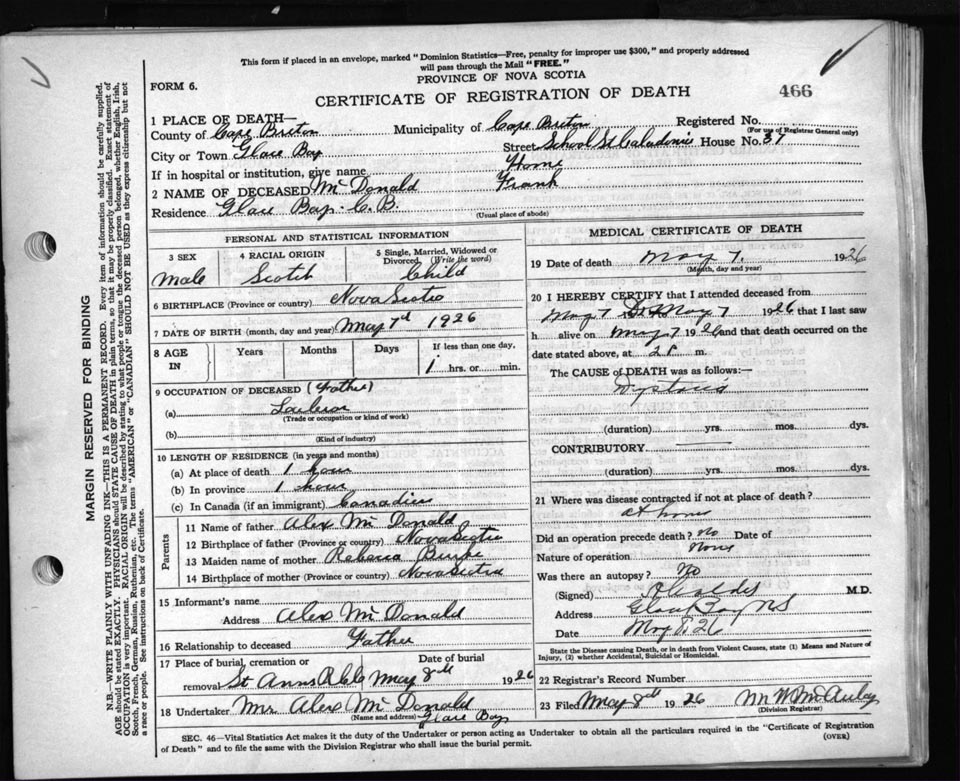 This form if placed in an envelope, marked "Dominion Statistics—Free, penalty for improper use $300," and properly addressed
will pass through the Mail "FREE."
PROVINCE OF NOVA SCOTIA
FORM 6.
CERTIFICATE OF REGISTRATION OF DEATH
466
1 PLACE OF DEATH—
County of Cape Breton Municipality of Cape Breton Registered No.
(For use of Registrar General only)
City or Town Glace Bay Street School St Caledonia House No. 37
If in hospital or institution, give name Home
2 NAME OF DECEASED McDonald Frank
Residence Glace Bay. C.B.
(Usual place of abode)
PERSONAL AND STATISTICAL INFORMATION
3 SEX 4 RACIAL ORIGIN 5 Single, Married, Widowed or
Divorced, (Write the word)
Male Scotch Child
6 BIRTHPLACE (Province or country) Nova Scotia
7 DATE OF BIRTH (month, day and year) May 7th 1926
8 AGE IN Years Months Days If less than one day,
1 hrs. or min.
9 OCCUPATION OF DECEASED (Father)
(a) Laborer
(Trade or occupation or kind of work)
(b)
(Kind of industry)
10 LENGTH OF RESIDENCE (in years and months)
(a) At place of death 1 hour
(b) In province 1 hour
(c) In Canada (if an immigrant) Canadian
Parents
11 Name of father Alex McDonald
12 Birthplace of father (Province or country) Nova Scotia
13 Maiden name of mother Rebecca Burke
14 Birthplace of mother (Province or country) Nova Scotia
15 Informant's name
Address Alex McDonald
16 Relationship to deceased Father
17 Place of burial, cremation or Date of burial
removal St Anns May 8th 1926
18 Undertaker Mr Alex McDonald
(Name and address) Glace Bay
MEDICAL CERTIFICATE OF DEATH
19 Date of death May 7. 1926
(Month, day and year)
20 I HEREBY CERTIFY that I attended deceased from
May 7 to May 7 1926 that I last saw
h alive on May 7 1926 and that death occurred on the
date stated above, at 2 P. m.
The CAUSE of DEATH was as follows:—
Dystocia
(duration) yrs. mos. dys.
CONTRIBUTORY.
(duration) yrs. mos. dys.
21 Where was disease contracted if not at place of death?
at home
Did an operation precede death? No Date of
Nature of operation None
Was there an autopsy? No
(Signed) M.D.
Address Glace Bay NS
Date May 8 26
State the Disease causing Death, or in death from Violent Causes, state (1) Means and Nature of
Injury, (2) whether Accidental, Suicidal or Homicidal.
22 Registrar's Record Number
23 Filed May 8th 1926 M W McAulay
(Division Registrar)
SEC. 46—Vital Statistics Act makes it the duty of the Undertaker or person acting as Undertaker to obtain all the particulars required in the "Certificate of Registration
of Death" and to file the same with the Division Registrar who shall issue the burial permit.
(OVER)
MARGIN RESERVED FOR BINDING
N.B.—WRITE PLAINLY WITH UNFADING INK—THIS IS A PERMANENT RECORD. Every item of information should be carefully supplied.
AGE should be stated EXACTLY. PHYSICIANS should STATE CAUSE OF DEATH in plain terms, so that it may be properly classified. Exact statement of
OCCUPATION is very important. RACIAL ORIGIN will be described by stating to what people or tongue the deceased person belonged, whether English, Irish,
Scotch, French, German, Russian, Ruthenian, etc. The terms "AMERICAN" or "CANADIAN" SHOULD NOT BE USED as they express citizenship but not
a race or people. See instructions on back of Certificate.